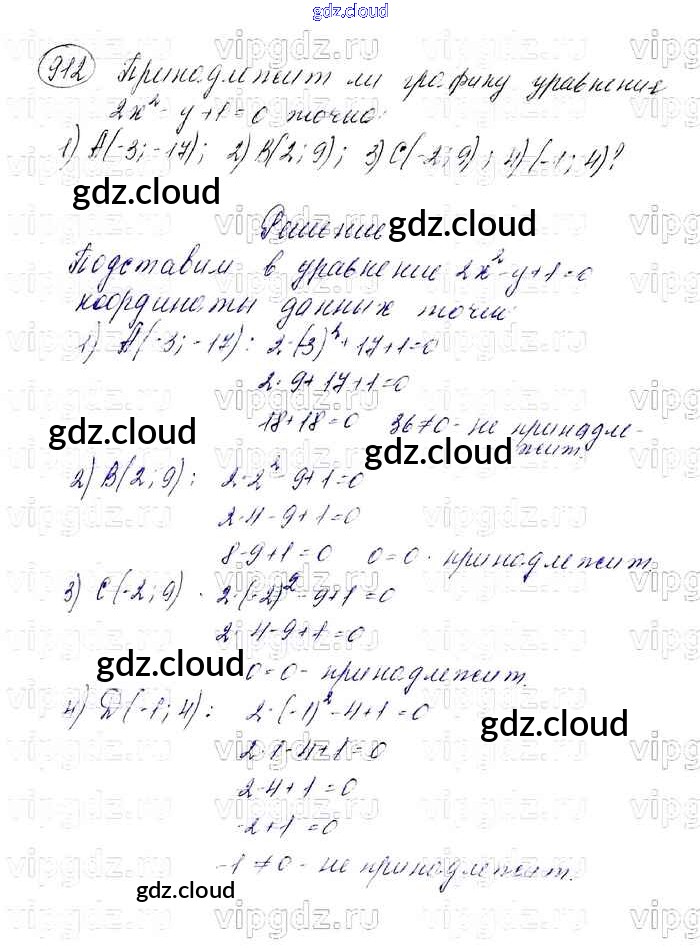 gdz.cloud
912 Принадлежит ли графику уравнения
2x² - y + 1 = 0 точка:
1) A(-3; -17); 2) B(2; 9); 3) C(-2; 9); 4) (-1; 4)?
gdz.cloud
gdz.cloud
Решение
Подставим в уравнение 2x² - y + 1 = 0
координаты данных точек:
1) A(-3; -17): 2·(3)² + 17 + 1 = 0
2·9 + 17 + 1 = 0
18 + 18 = 0 36 ≠ 0 - не принадле-
жит.
gdz.cloud
gdz.cloud
2) B(2; 9): 2·2² - 9 + 1 = 0
2·4 - 9 + 1 = 0
8 - 9 + 1 = 0 0 = 0 - принадлежит.
3) C(-2; 9) · 2·(-2)² - 9 + 1 = 0
2·4 - 9 + 1 = 0
gdz.cloud
0 = 0 - принадлежит.
4) D(-1; 4): 2·(-1)² - 4 + 1 = 0
gdz.cloud
2·1 - 4 + 1 = 0
2 - 4 + 1 = 0
-2 + 1 = 0
-1 ≠ 0 - не принадлежит.
gdz.cloud
vipgdz.ru